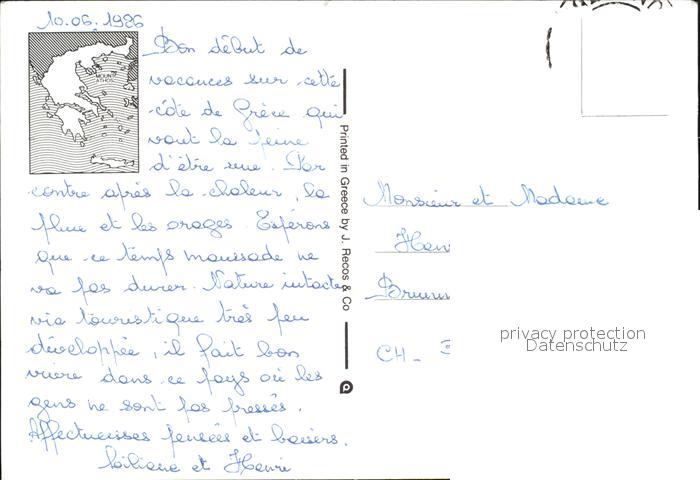 10.06.1986
Bon début de
vacances sur cette
côte de Grèce qui
vaut la peine
d'être vue. Par
contre après la chaleur, la
pluie et les orages. Espérons
que ce temps maussade ne
va pas durer. Nature intacte
vie touristique très peu
développée, il fait bon
vivre dans ce pays où les
gens ne sont pas pressés.
Affectueuses pensées et baisers.
Liliane et Henri
MOUNT
ATHOS
Printed in Greece by J. Recos & Co
Monsieur et Madame
CH-
privacy protection
Datenschutz